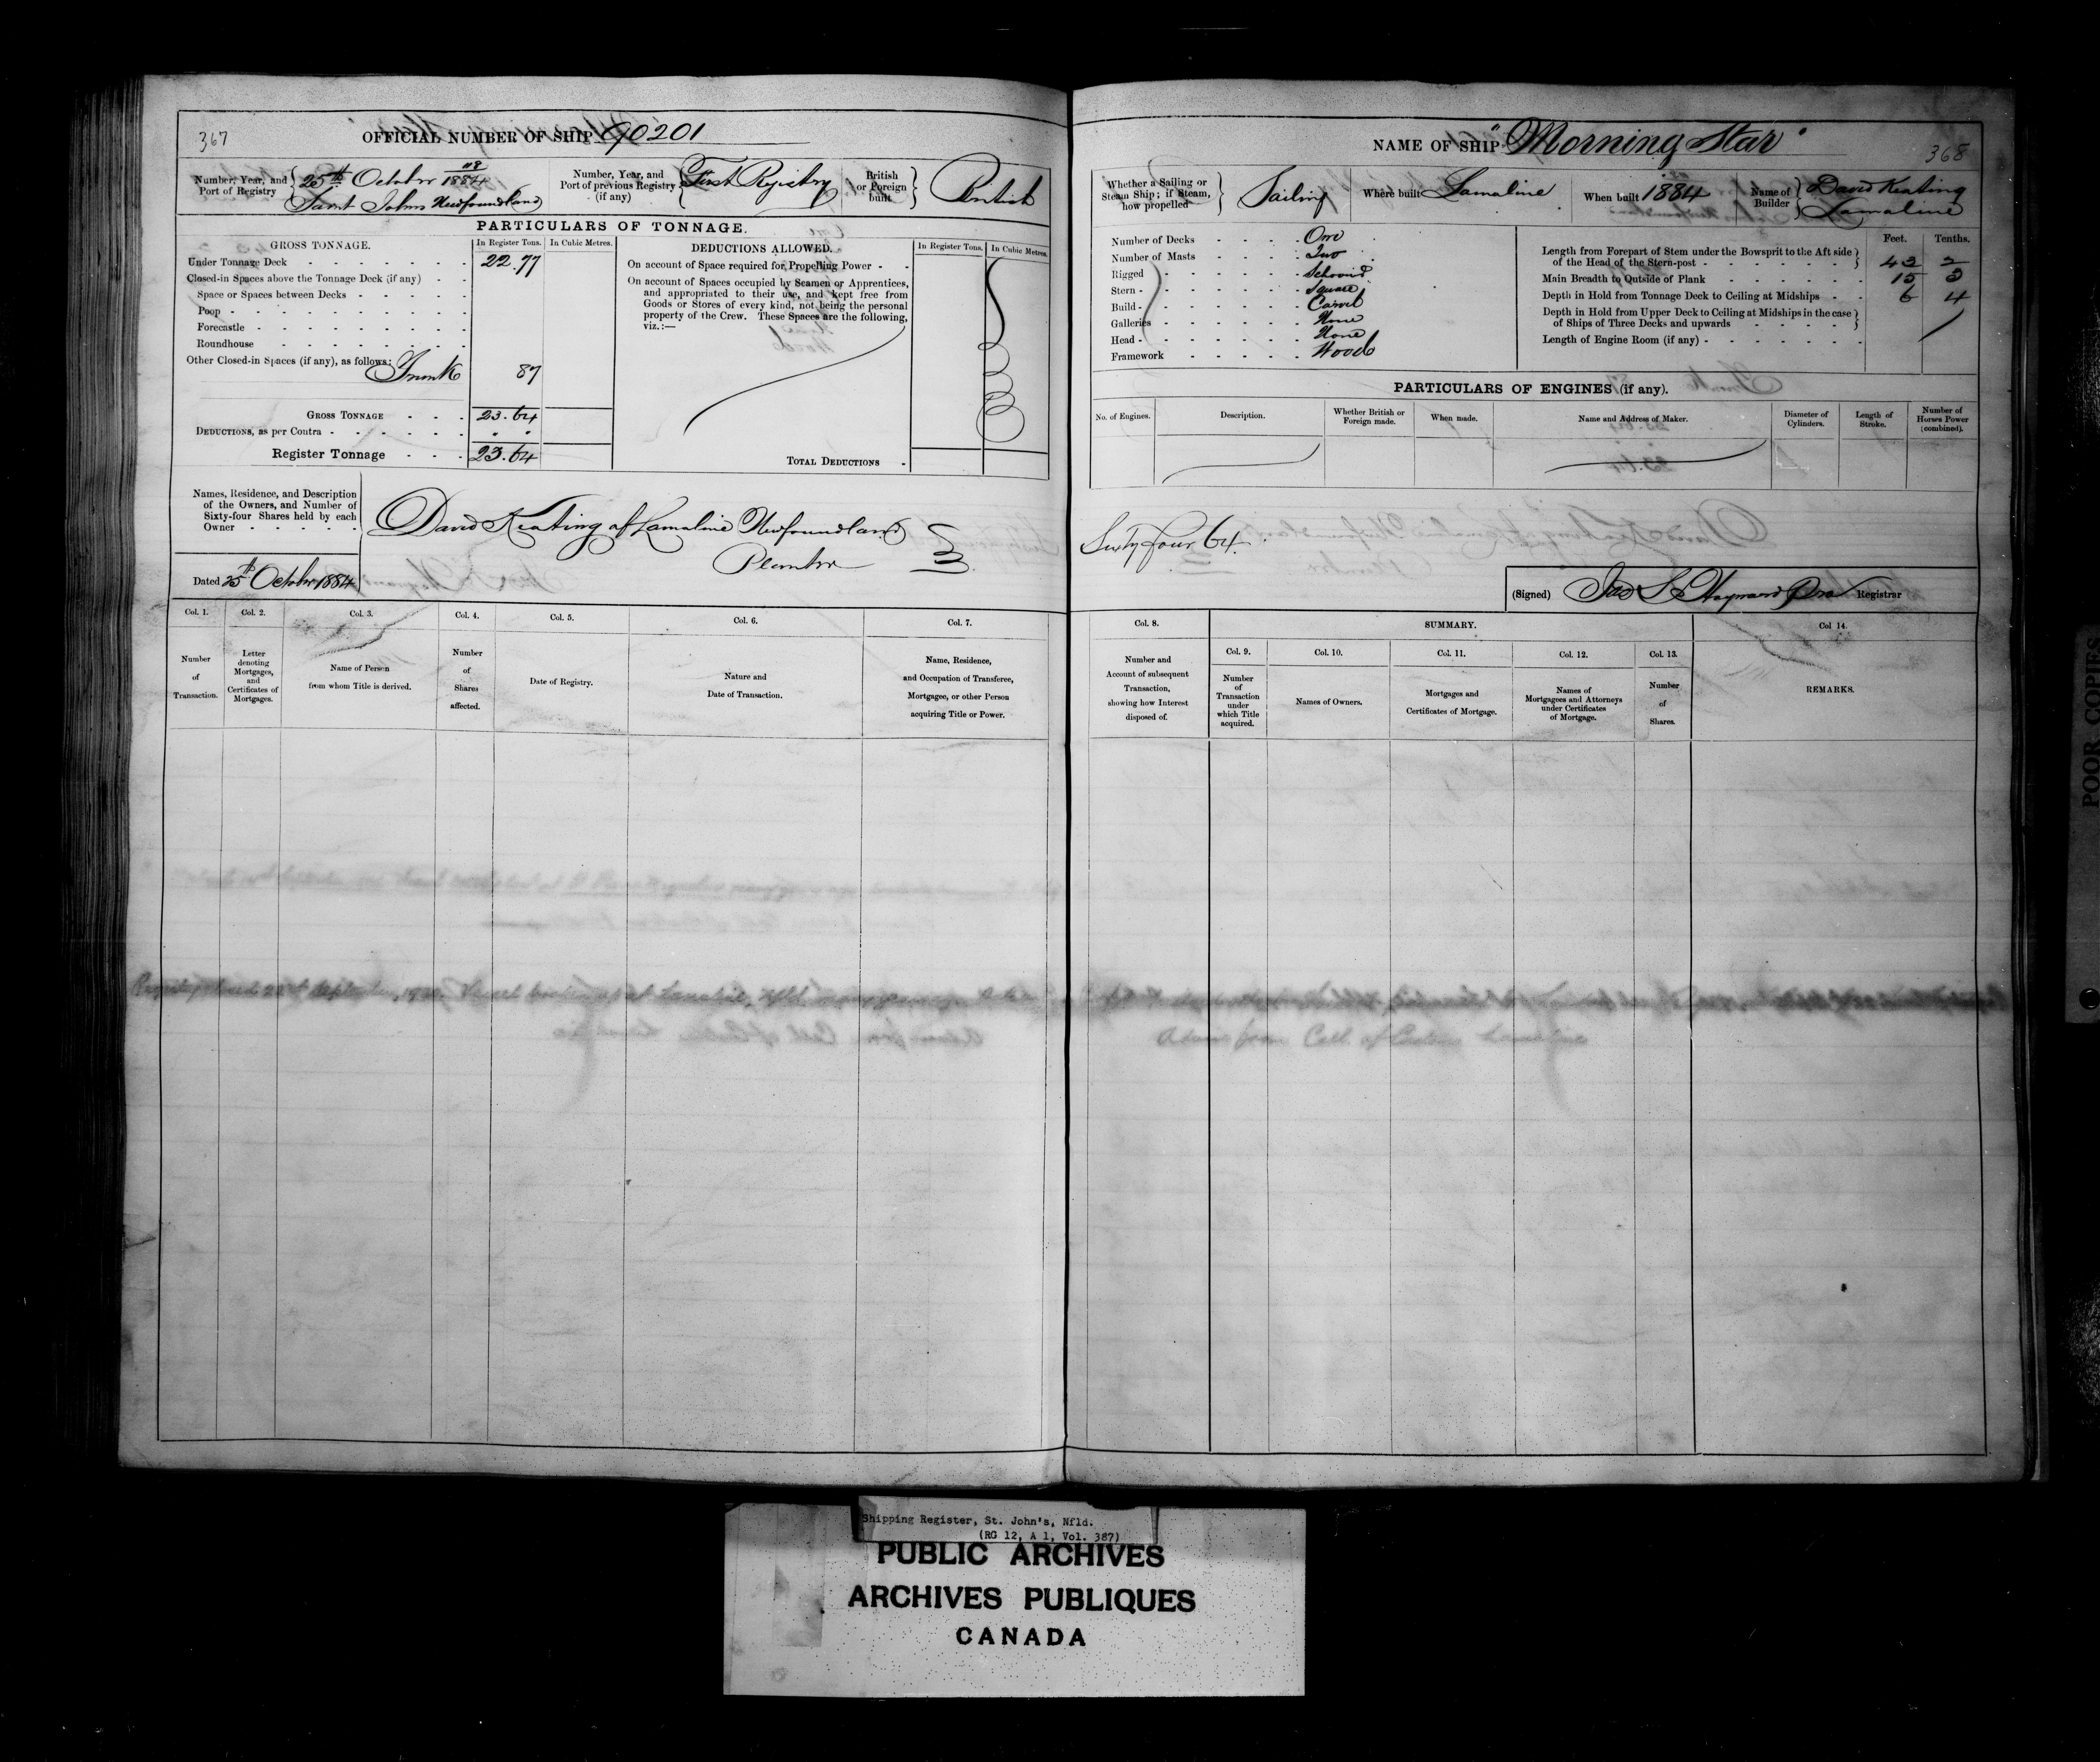 367
OFFICIAL NUMBER OF SHIP 90201
Number, Year, and Port of Registry
118
25th October 1884
Saint Johns Newfoundland
Number, Year, and Port of previous Registry (if any)
First Registry
British or Foreign built
British
PARTICULARS OF TONNAGE.
GROSS TONNAGE.
In Register Tons.
In Cubic Metres.
Under Tonnage Deck 22.77
Closed-in Spaces above the Tonnage Deck (if any)
Space or Spaces between Decks
Poop
Forecastle
Roundhouse
Other Closed-in Spaces (if any), as follows:
Trunk 87
GROSS TONNAGE 23.64
DEDUCTIONS, as per Contra
Register Tonnage 23.64
DEDUCTIONS ALLOWED.
In Register Tons.
In Cubic Metres.
On account of Space required for Propelling Power
On account of Spaces occupied by Seamen or Apprentices,
and appropriated to their use, and kept free from
Goods or Stores of every kind, not being the personal
property of the Crew. These Spaces are the following,
viz.:—
TOTAL DEDUCTIONS
Names, Residence, and Description
of the Owners, and Number of
Sixty-four Shares held by each
Owner
David Keating of Lamaline Newfoundland
Planter
Dated 25th October 1884
Col. 1.
Number of Transaction.
Col. 2.
Letter denoting Mortgages, and Certificates of Mortgages.
Col. 3.
Name of Person from whom Title is derived.
Col. 4.
Number of Shares affected.
Col. 5.
Date of Registry.
Col. 6.
Nature and Date of Transaction.
Col. 7.
Name, Residence, and Occupation of Transferee, Mortgagee, or other Person acquiring Title or Power.
NAME OF SHIP "Morning Star"
368
Whether a Sailing or Steam Ship; if Steam, how propelled
Sailing
Where built Lamaline
When built 1884
Name of Builder
David Keating
Lamaline
Number of Decks One
Number of Masts Two
Rigged Schooner
Stern Square
Build Carvel
Galleries None
Head None
Framework Wood
Feet. Tenths.
Length from Forepart of Stem under the Bowsprit to the Aft side
of the Head of the Stern-post 43 2
Main Breadth to Outside of Plank 15 3
Depth in Hold from Tonnage Deck to Ceiling at Midships 6 4
Depth in Hold from Upper Deck to Ceiling at Midships in the case
of Ships of Three Decks and upwards
Length of Engine Room (if any)
PARTICULARS OF ENGINES (if any).
No. of Engines.
Description.
Whether British or Foreign made.
When made.
Name and Address of Maker.
Diameter of Cylinders.
Length of Stroke.
Number of Horses Power (combined).
Sixty four 64.
(Signed) Jas S. Hayward Pro Registrar
Col. 8.
Number and Account of subsequent Transaction, showing how Interest disposed of.
SUMMARY.
Col. 9.
Number of Transaction under which Title acquired.
Col. 10.
Names of Owners.
Col. 11.
Mortgages and Certificates of Mortgage.
Col. 12.
Names of Mortgagees and Attorneys under Certificates of Mortgage.
Col. 13.
Number of Shares.
Col 14.
REMARKS.
Advice from Coll. of Customs Lamaline
POOR COPIES
Shipping Register, St. John's, Nfld.
(RG 12, A 1, Vol. 387)
PUBLIC ARCHIVES
ARCHIVES PUBLIQUES
CANADA